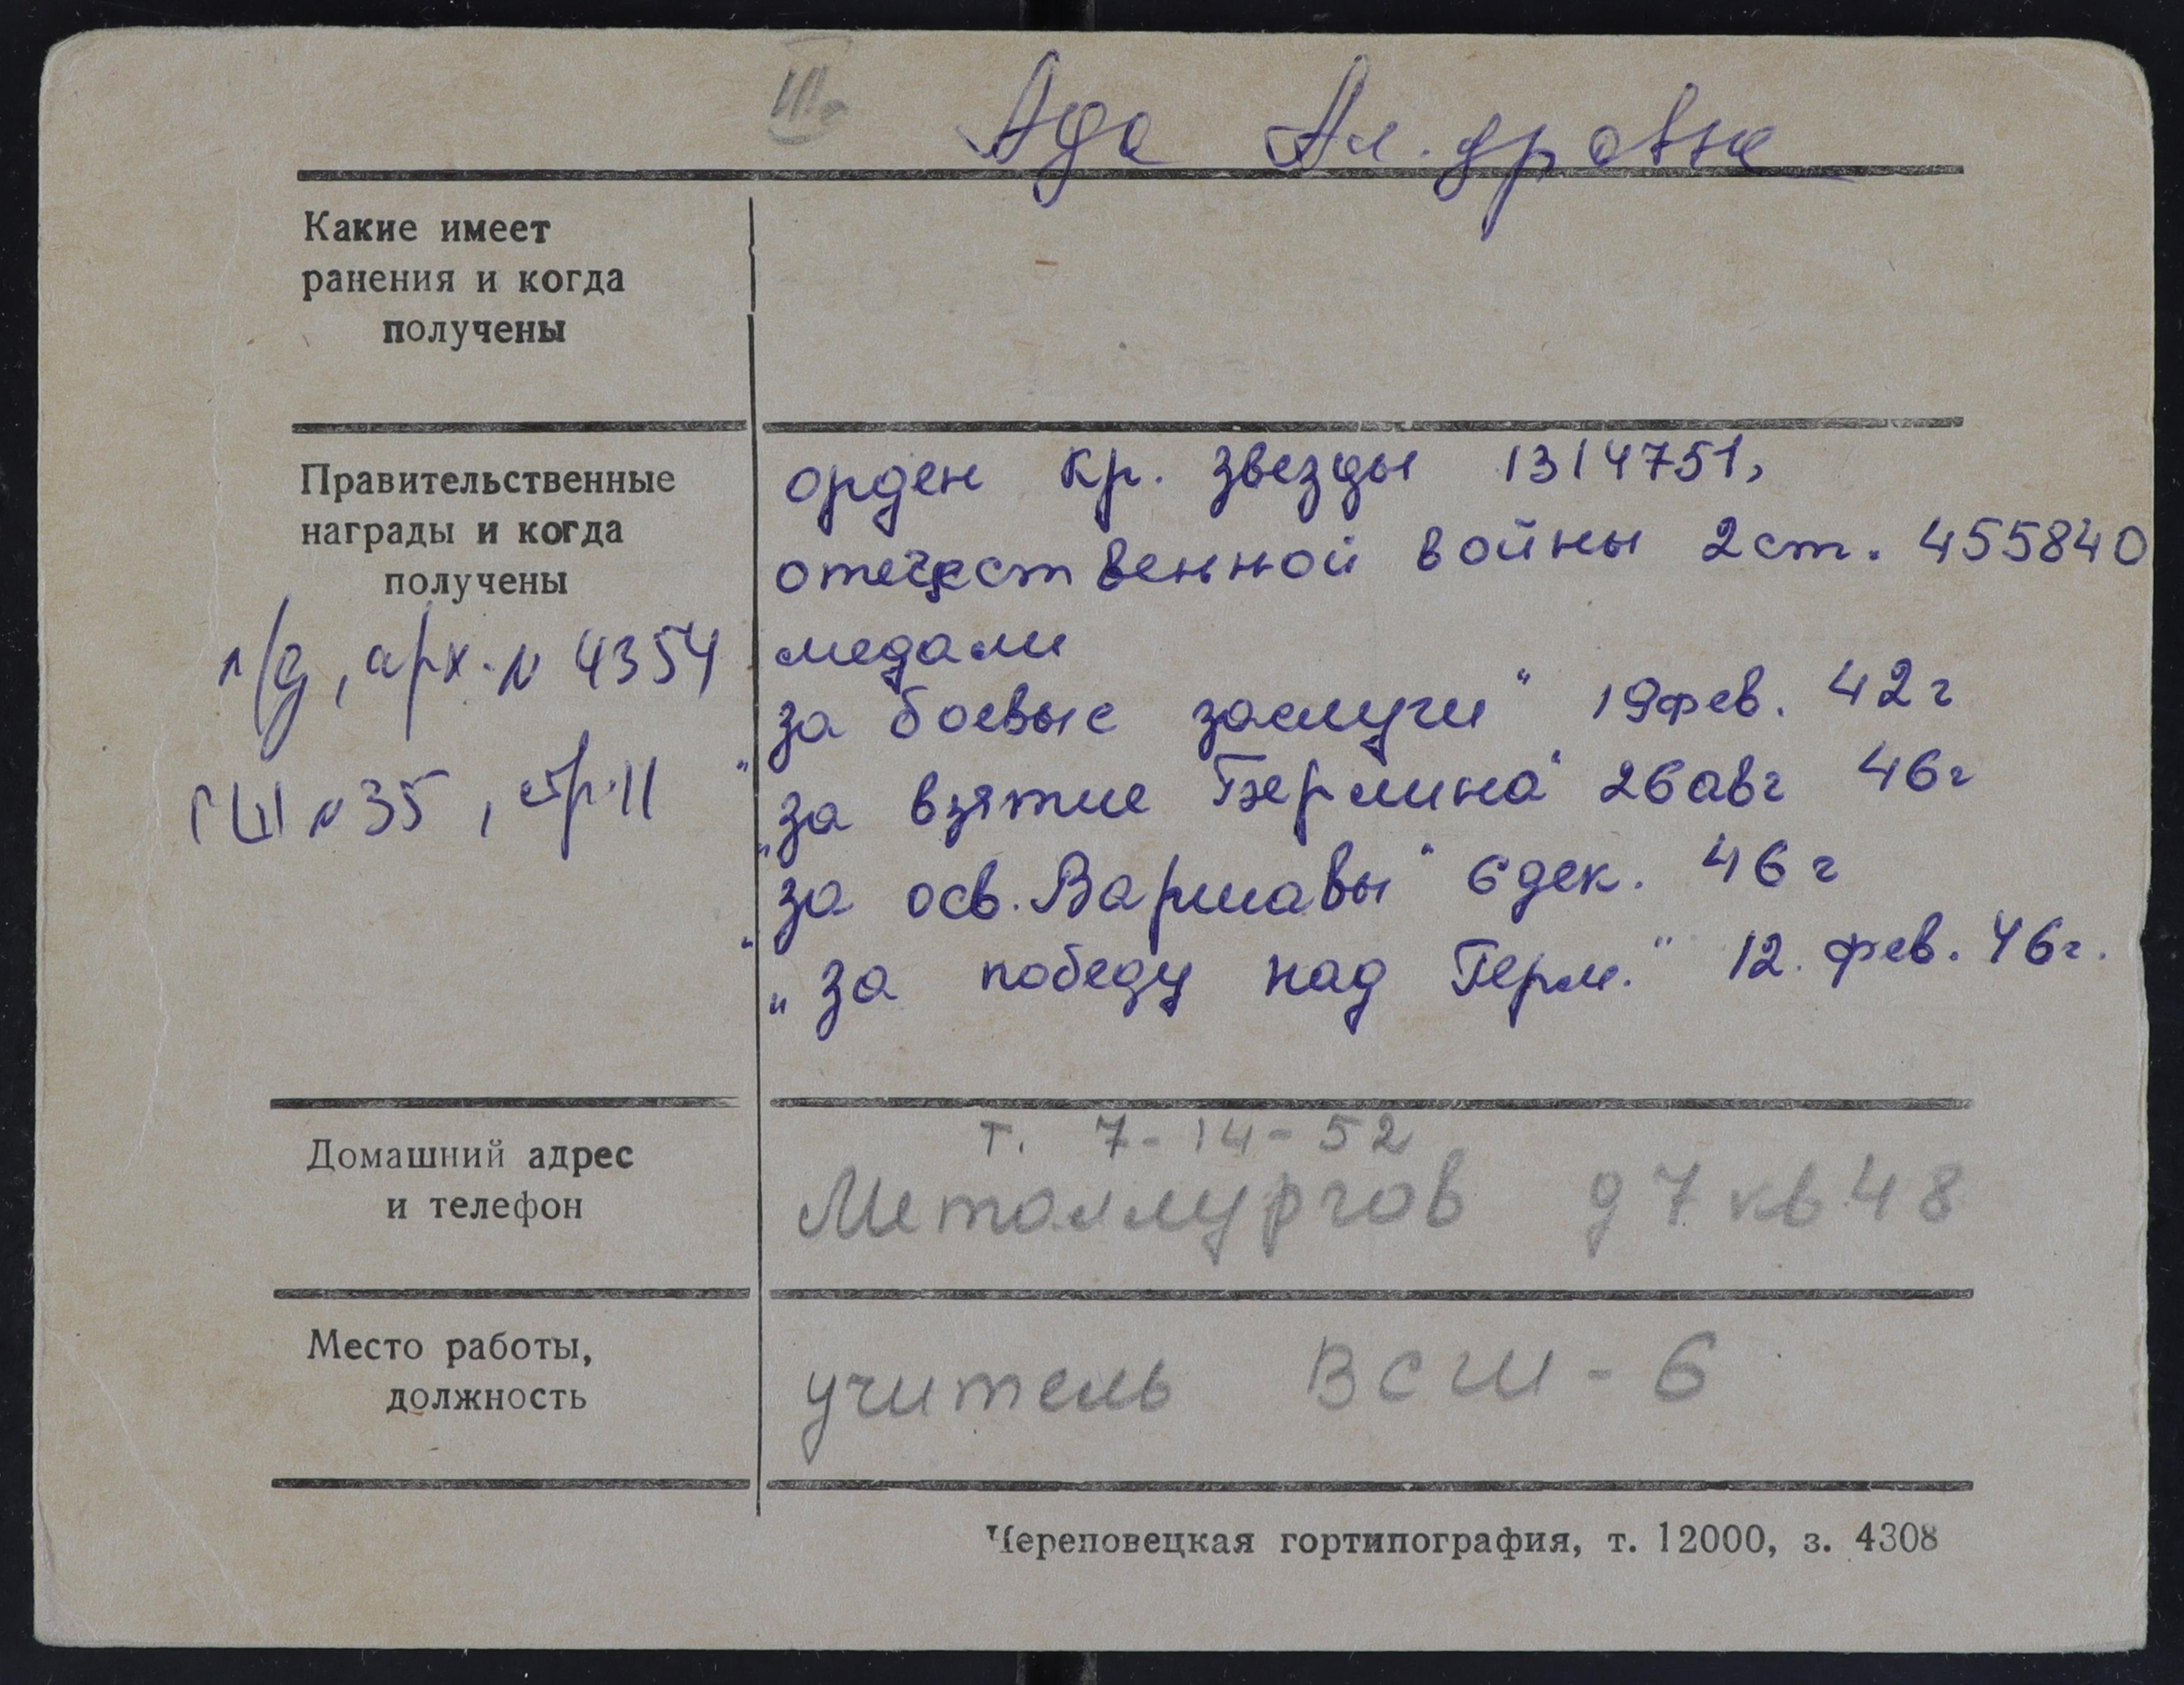 III
Ада Ал.дровна
Какие имеет
ранения и когда
получены
Правительственные
награды и когда
получены
л/д, арх. N 4354
ГШ N 35, стр. 11
орден Кр. звезды 1314751,
отечественной войны 2 ст. 455840
медали
за боевые заслуги" 19 фев. 42 г
"за взятие Берлина" 26 авг 46 г
"за осв. Варшавы" 6 дек. 46 г
"за победу над Герм." 12. фев. 46 г.
Домашний адрес
и телефон
т. 7-14-52
Металлургов д 7 кв 48
Место работы,
должность
учитель ВСШ-6
Череповецкая гортипография, т. 12000, з. 4308